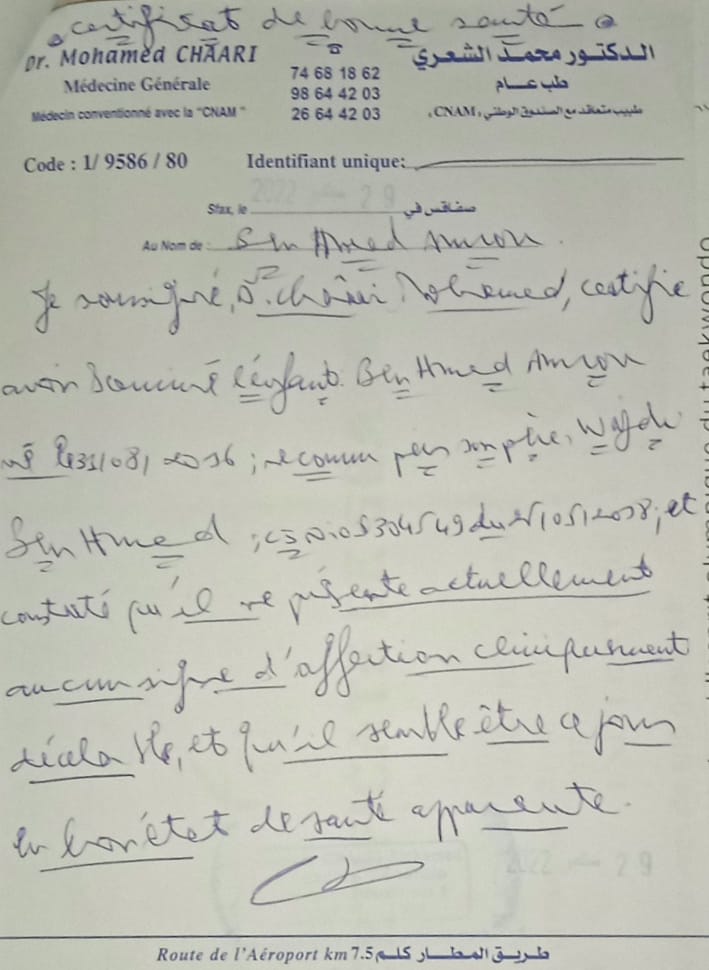 certificat de bonne santé
Dr. Mohamed CHAARI
الدكتور محمد الشعري
Médecine Générale
طب عام
74 68 18 62
98 64 42 03
26 64 42 03
Médecin conventionné avec la "CNAM"
طبيب متعاقد مع الصندوق الوطني "CNAM"
Code : 1/ 9586 / 80
Identifiant unique:
2022 29
Sfax, le
صفاقس في
Au Nom de : Ben Hmed Amron
Je soussigné, D. Châari Mohamed, certifie
avoir examiné l'enfant Ben Hmed Amron
né le 31/08/2016; reconnu par son père, Wajdi
Ben Hmed; CIN: 05304549 du /05/2018; et
constaté qu'il ne présente actuellement
aucun signe d'affection cliniquement
décelable, et qu'il semble être ce jour
en bon état de santé apparente.
2022 29
Route de l'Aéroport km 7.5 طريق المطار كلم
du taekwondo